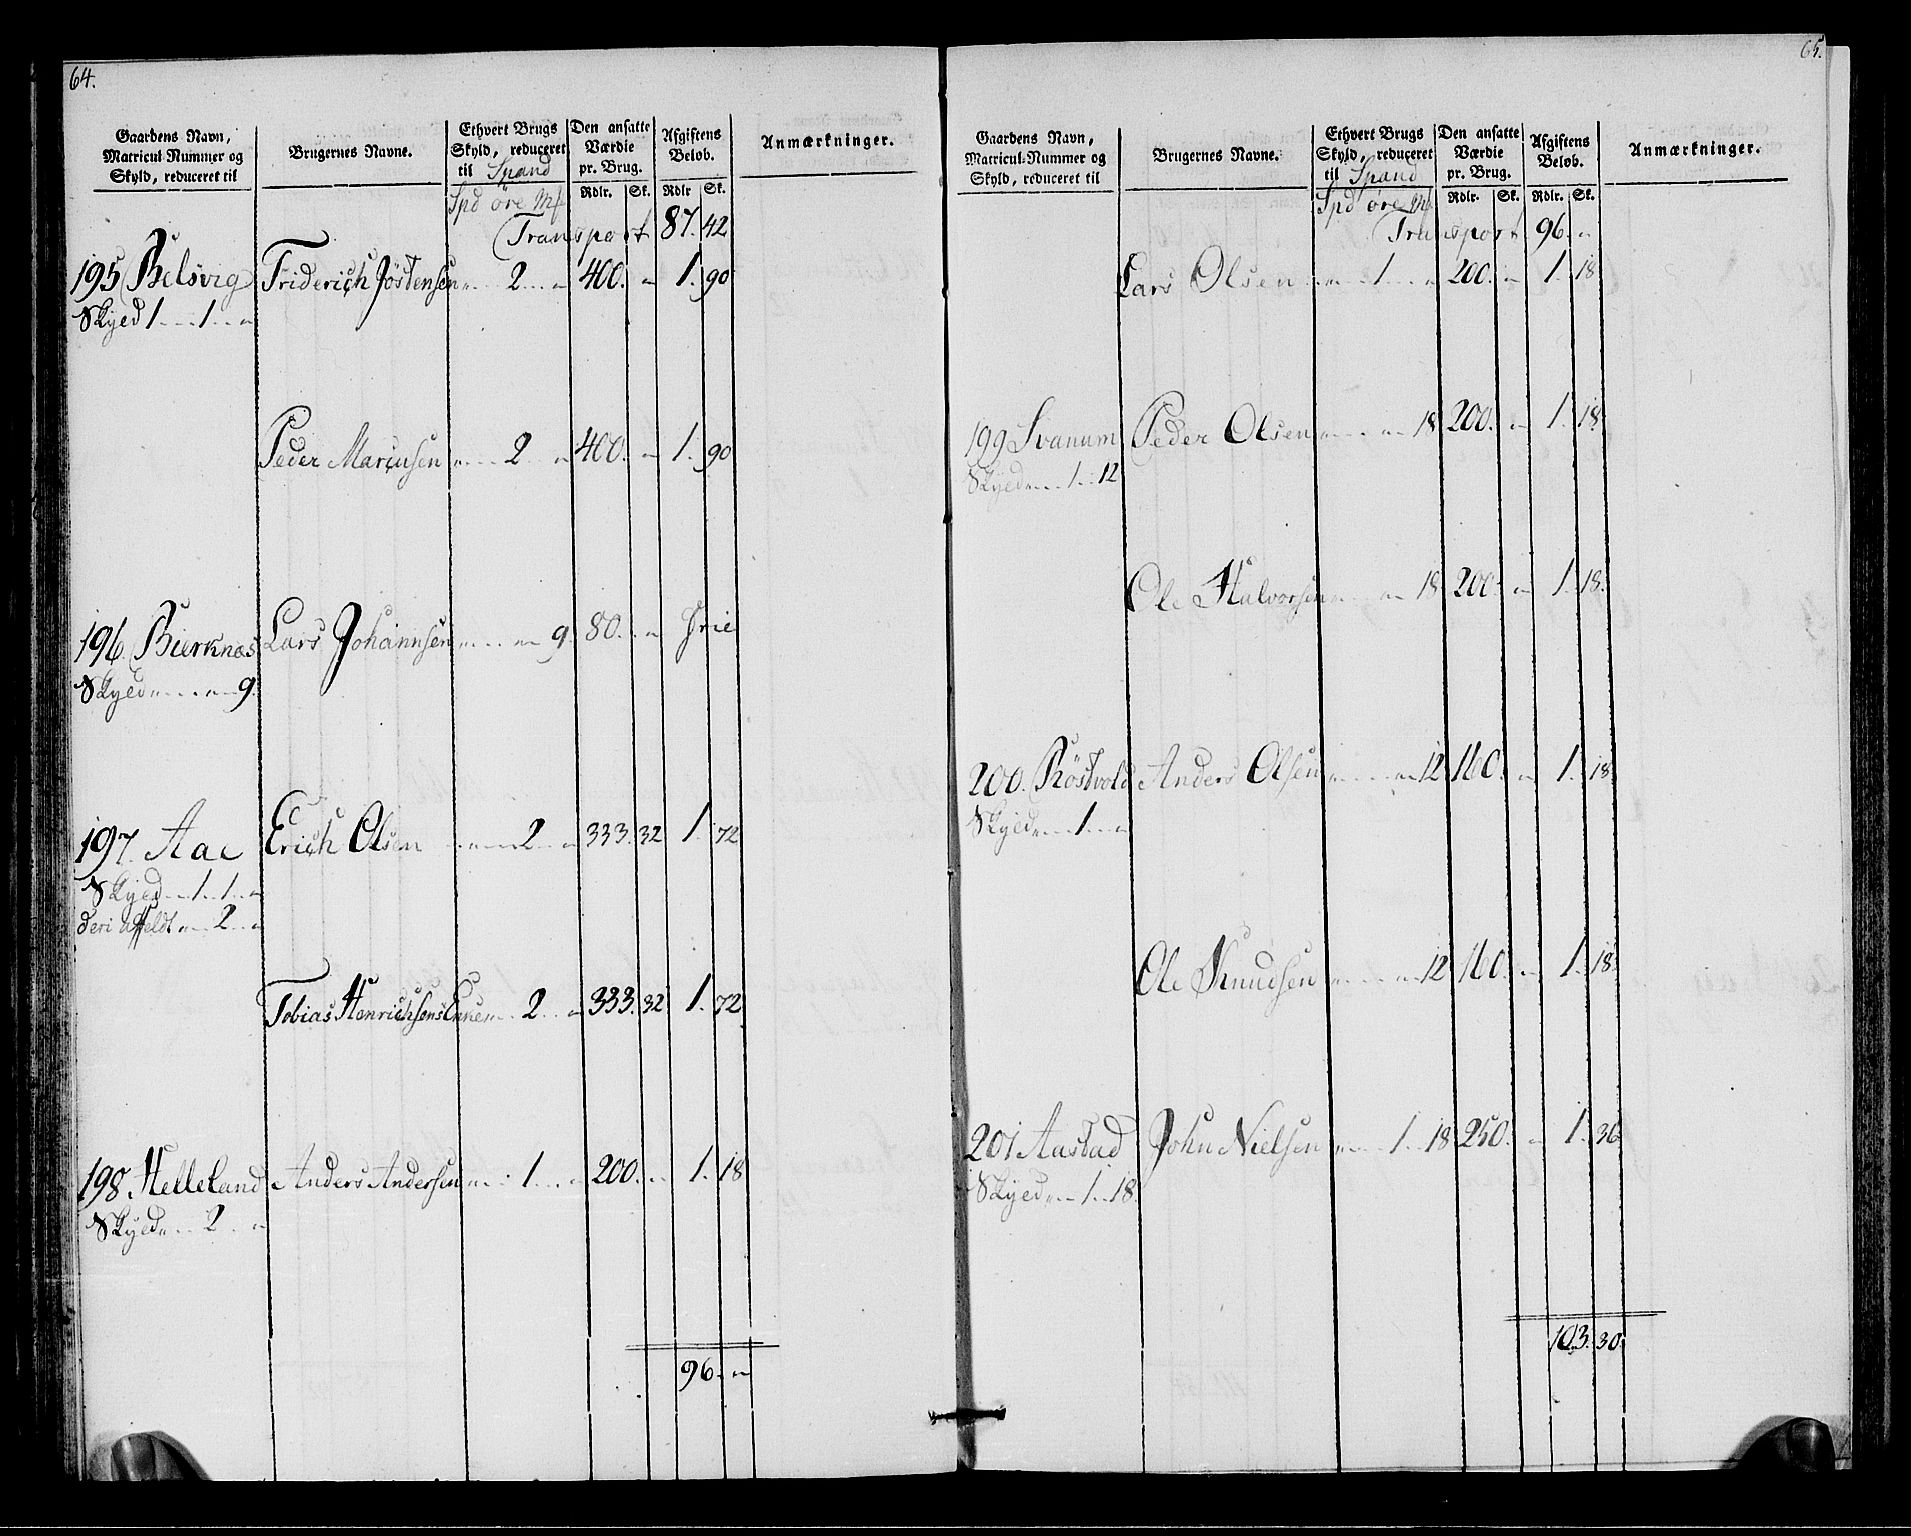 64.
Gaardens Navn, Matricul-Nummer og Skyld, reduceret til
Brugernes Navne.
Ethvert Brugs Skyld, reduceret til Spand
Den ansatte Værdie pr. Brug.
Afgiftens Beløb.
Anmærkninger.
Spd öre Mk Rdlr. Sk. Rdlr Sk.
Transport 87. 42
195 Belsvig Friderich Jöstensen „ 2 „ 400. „ 1. 90
Skyld 1 1 „
Peder Marcusen „ 2 „ 400. „ 1. 90
196. Bierknæs Lars Johannsen „ „ 9. 80. „ frie
Skyld „ „ 9.
197. Aae Erich Olsen „ 2 „ 333. 32 1. 72
Skyld 1 1 „
deri „ 2 „
Tobias Henrichsens Enke „ 2 „ 333. 32 1. 72
198. Helleland Anders Andersen „ 1 „ 200. „ 1. 18
Skyld „ 2 „
96. „
65.
Gaardens Navn, Matricul-Nummer og Skyld, reduceret til
Brugernes Navne.
Ethvert Brugs Skyld, reduceret til Spand
Den ansatte Værdie pr. Brug.
Afgiftens Beløb.
Anmærkninger.
Spd öre Mk Rdlr. Sk. Rdlr. Sk.
Transport 96. „
Lars Olsen „ 1 „ 200. „ 1. 18
199 Svanum Peder Olsen „ „ 18 200. „ 1. 18.
Skyld „ 1 12
Ole Halvorsen „ „ 18. 200. „ 1. 18.
200. Röstvold Anders Olsen „ „ 12 160. „ 1. 18.
Skyld „ 1 „
Ole Knudsen „ „ 12 160. „ 1. 18.
201 Aastad John Nielsen „ 1 18 250. „ 1. 36
Skyld „ 1 18.
103. 30.